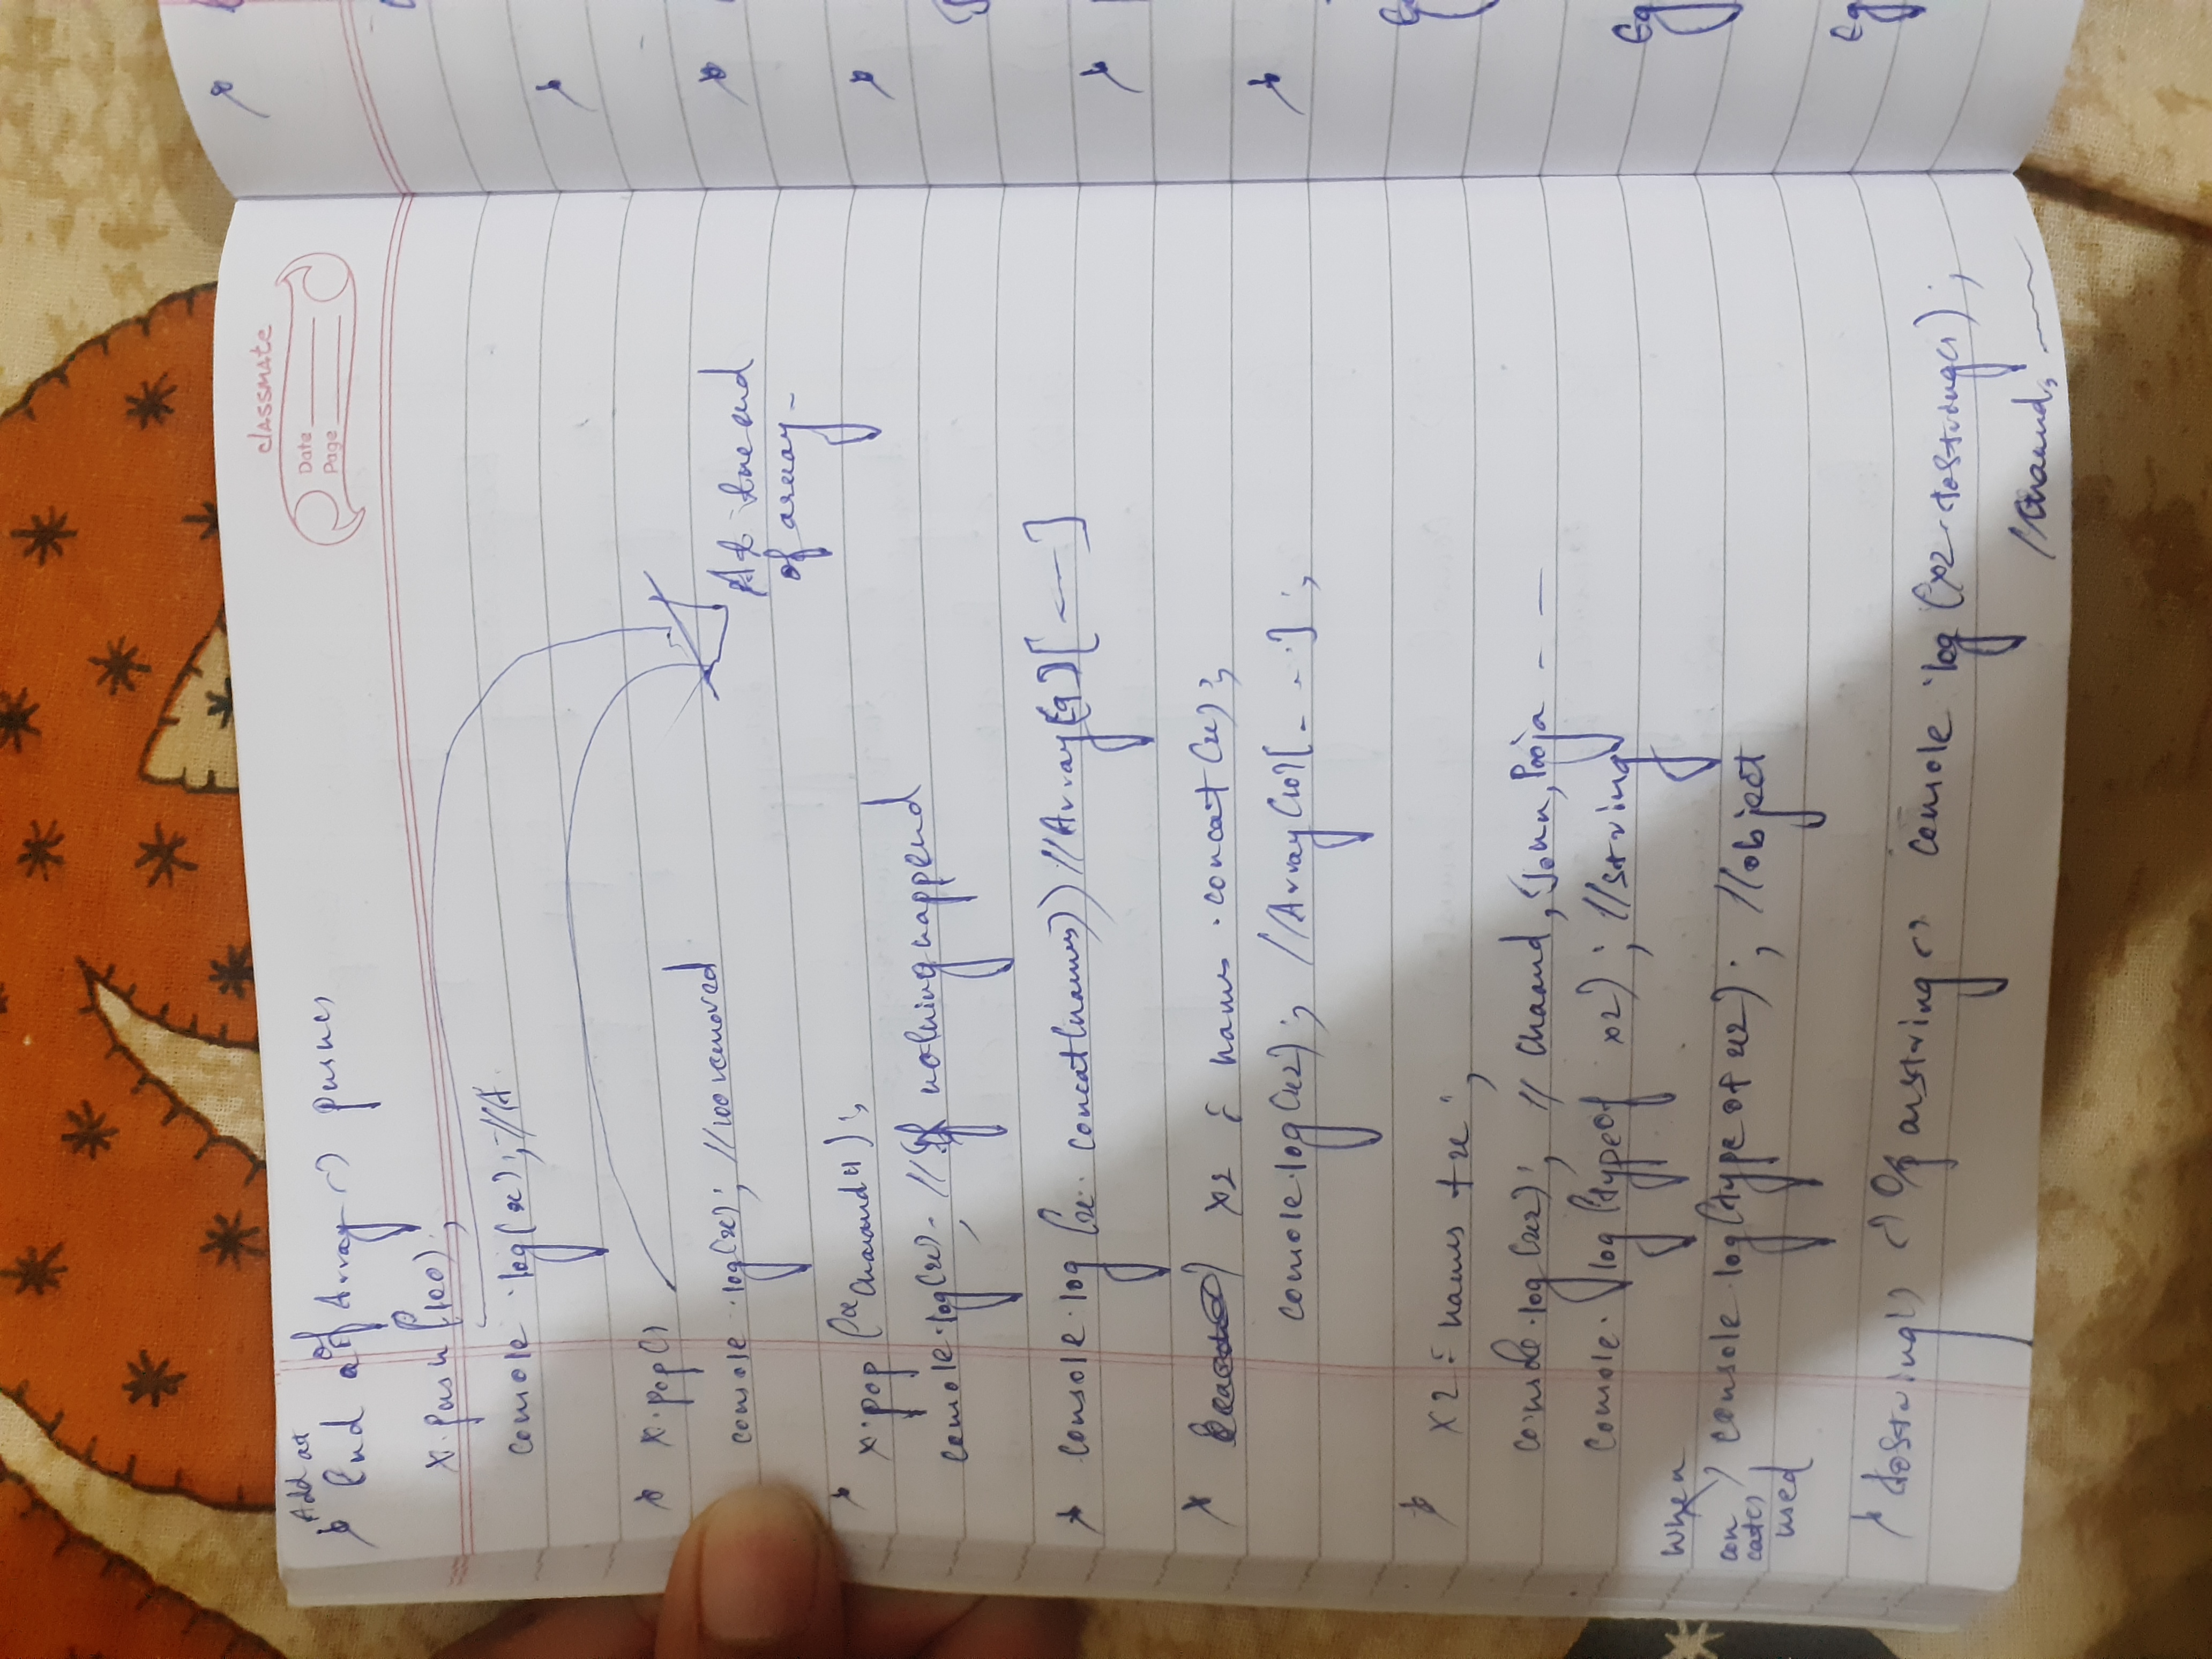 classmate
Date
Page
Add at
End of Array -> push()
x.push(100);
console.log(x); //A
x.pop()
console.log(x); //100 removed
At the end
of array-
x.pop("Chaand");
console.log(x); // nothing happend
console.log(x.concat(names)) //Array(9)[ — ]
x2 = names.concat(x);
console.log(x2); //Array(10)[- - -];
x2 = names + x;
console.log(x2); // Chaand, John, Pooja - —
console.log(typeof x2); //string
When
concat()
used
console.log(typeof x2); //object
toString() -> string -> console.log(x2.toString());
//Chaand,
Eg
Eg